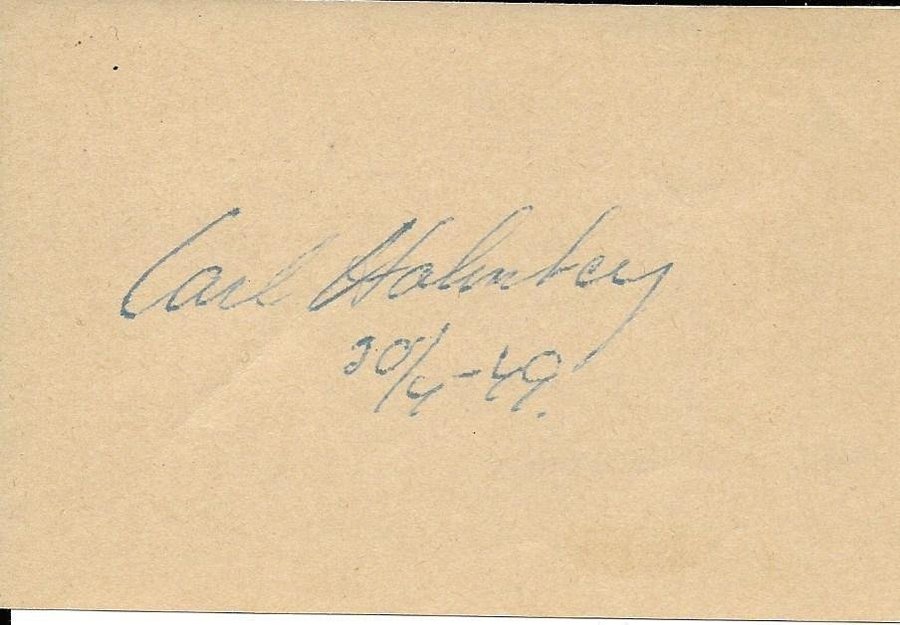 Carl Holmberg
30/4-49.